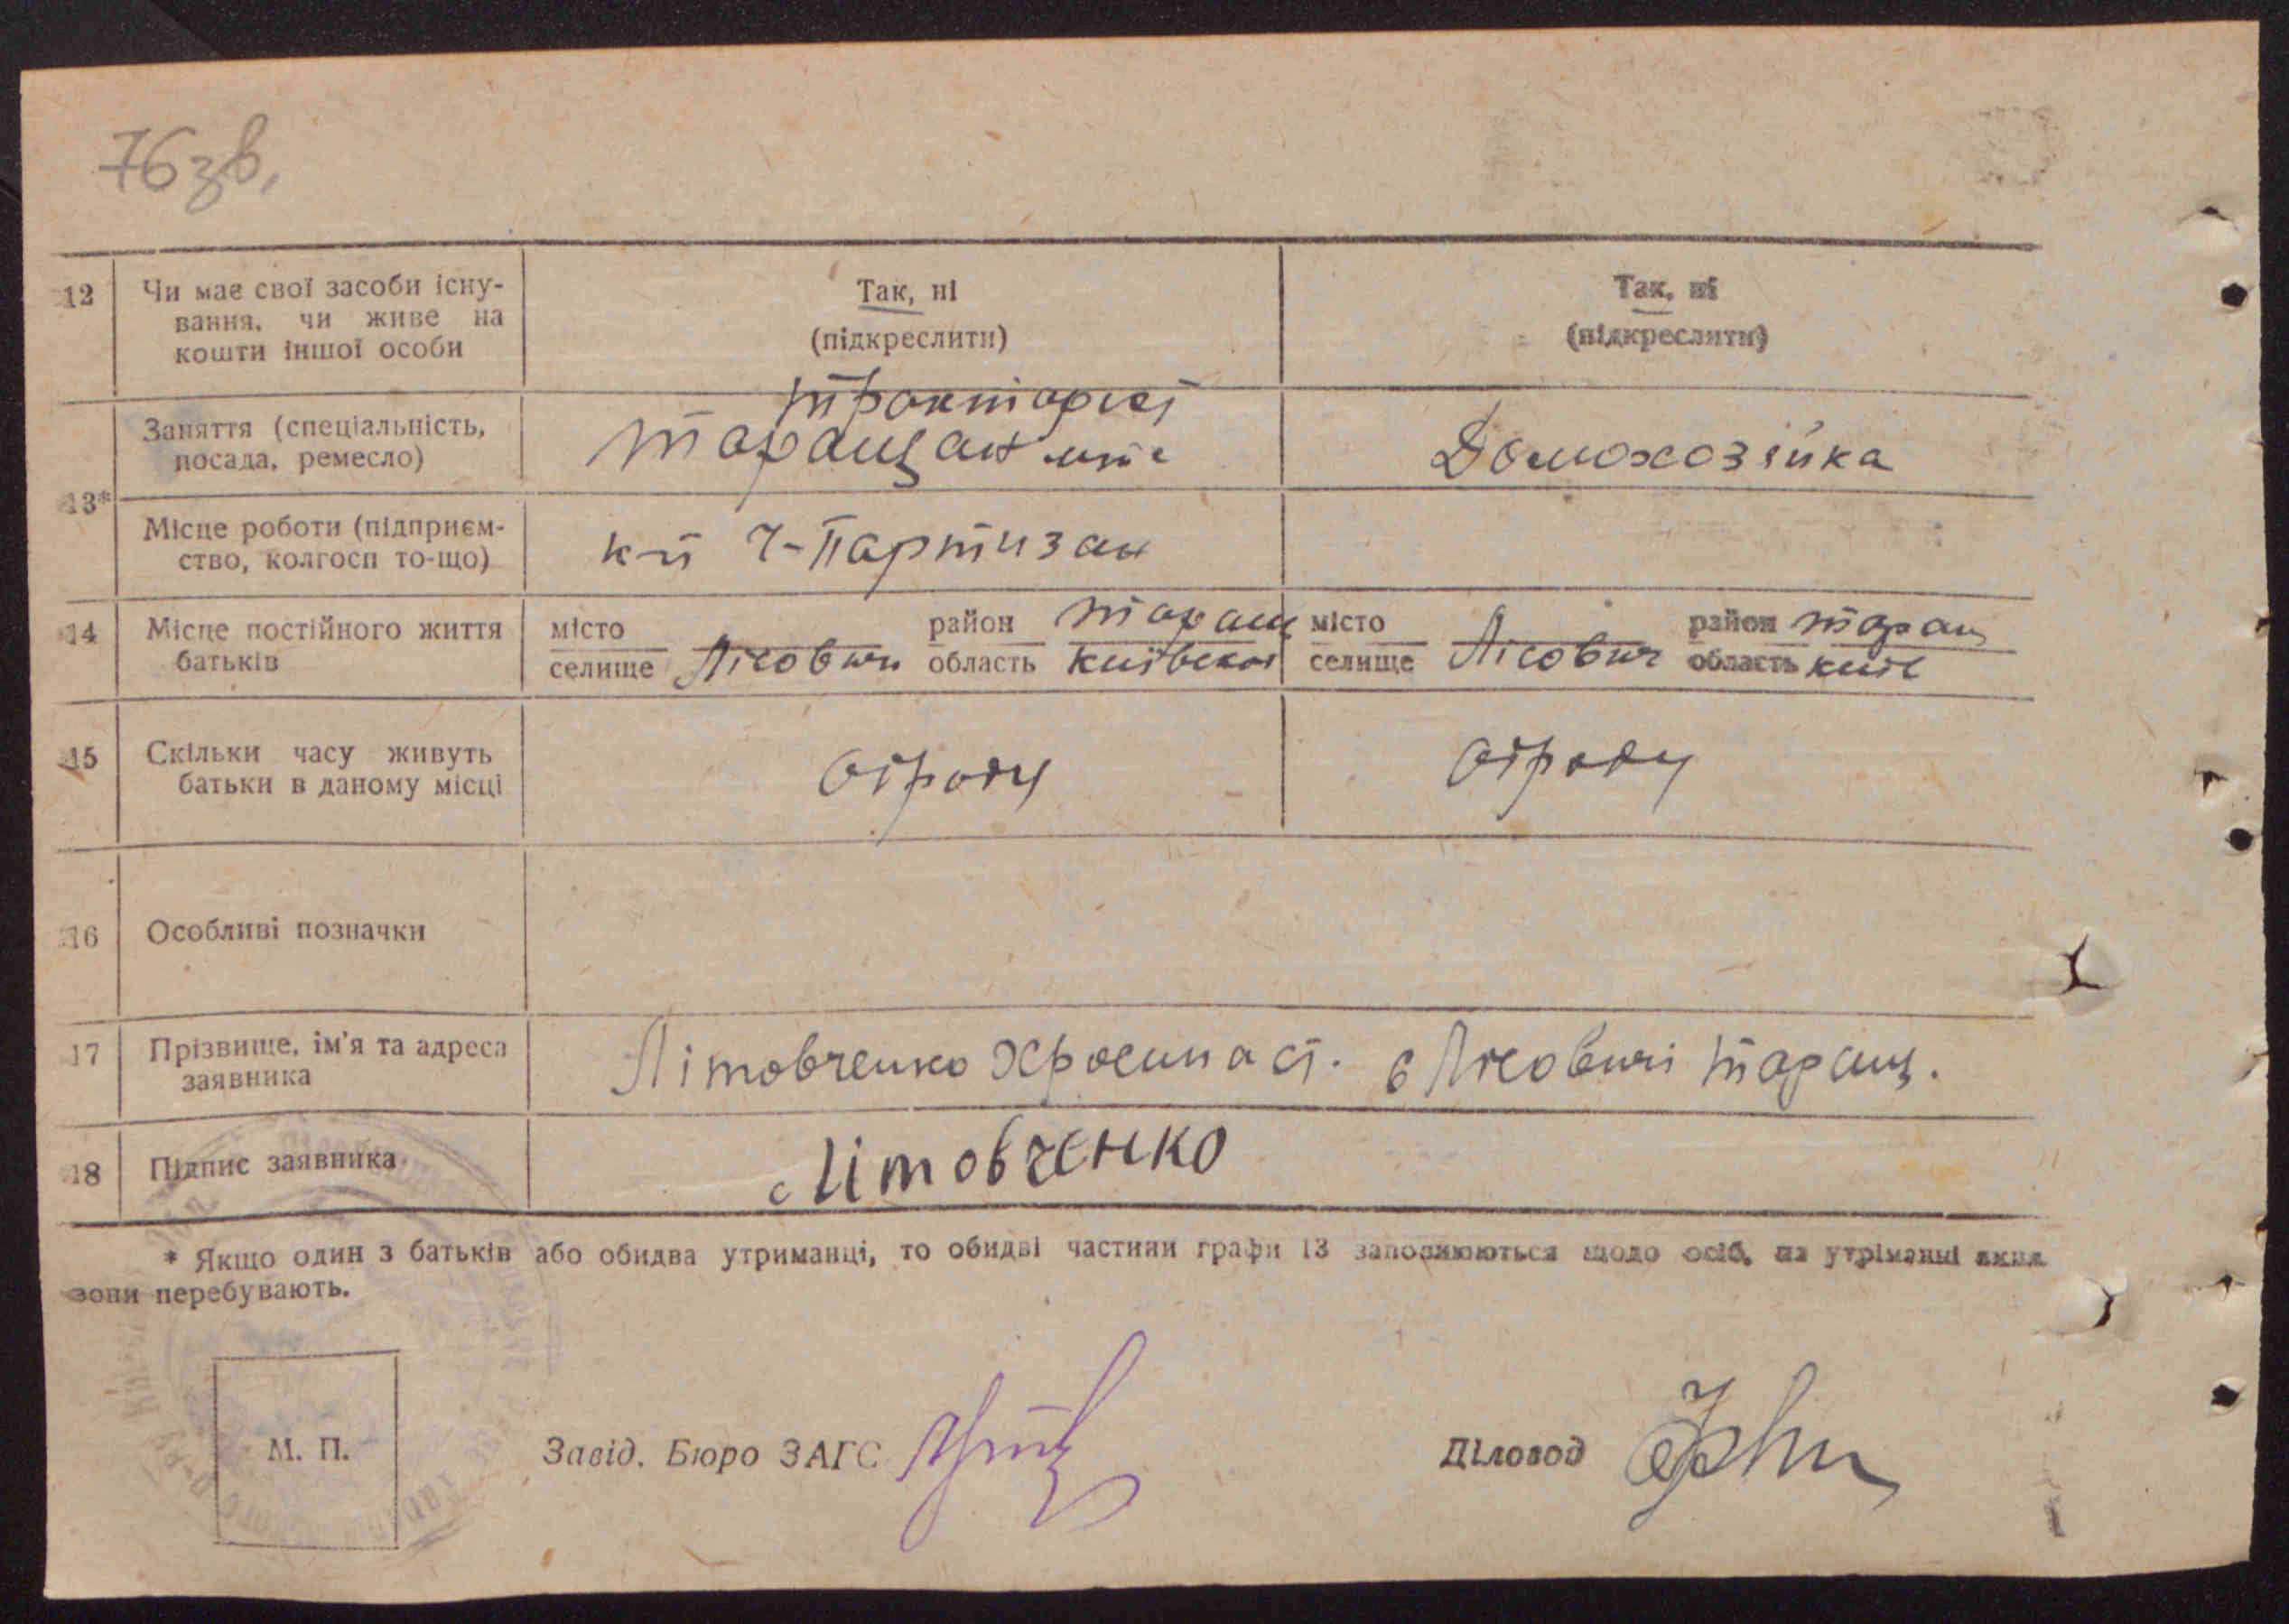 76 зв,
12
Чи має свої засоби існу-
вання, чи живе на
кошти іншої особи
Так, ні
(підкреслити)
Так, ні
(підкреслити)
13*
Заняття (спеціальність,
посада, ремесло)
Таращан
Домохозяйка
Місце роботи (підприєм-
ство, колгосп то-що)
Ч-Партизан
14
Місце постійного життя
батьків
місто
селище Лісовичи
район Таращ
область Київської
місто
селище Лісович
район Таращ
область Київ
15
Скільки часу живуть
батьки в даному місці
Зроду
Зроду
16
Особливі позначки
17
Прізвище, ім'я та адреса
заявника
Літовченко с Лісовичі Таращ.
18
Підпис заявника
Літовченко
* Якщо один з батьків або обидва утриманці, то обидві частини графи 13 заповнюються щодо осіб, на утріманні яких
вони перебувають.
М. П.
Завід. Бюро ЗАГС
Діловод